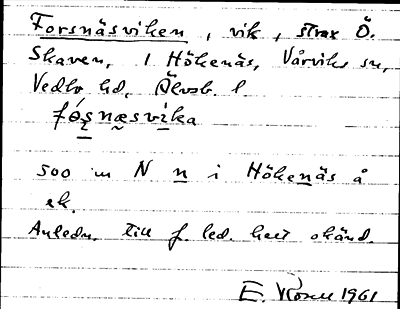 Forsnäsviken, vik, strax Ö.
Skaven, 1 Hökenäs, Vårviks sn,
Vedbo hd, Älvsb. l.
fǿs̱næsvika
500 m N n i Hökenäs å
ek.
Anledn. till f. led. helt okänd.
E. Rosell 1961